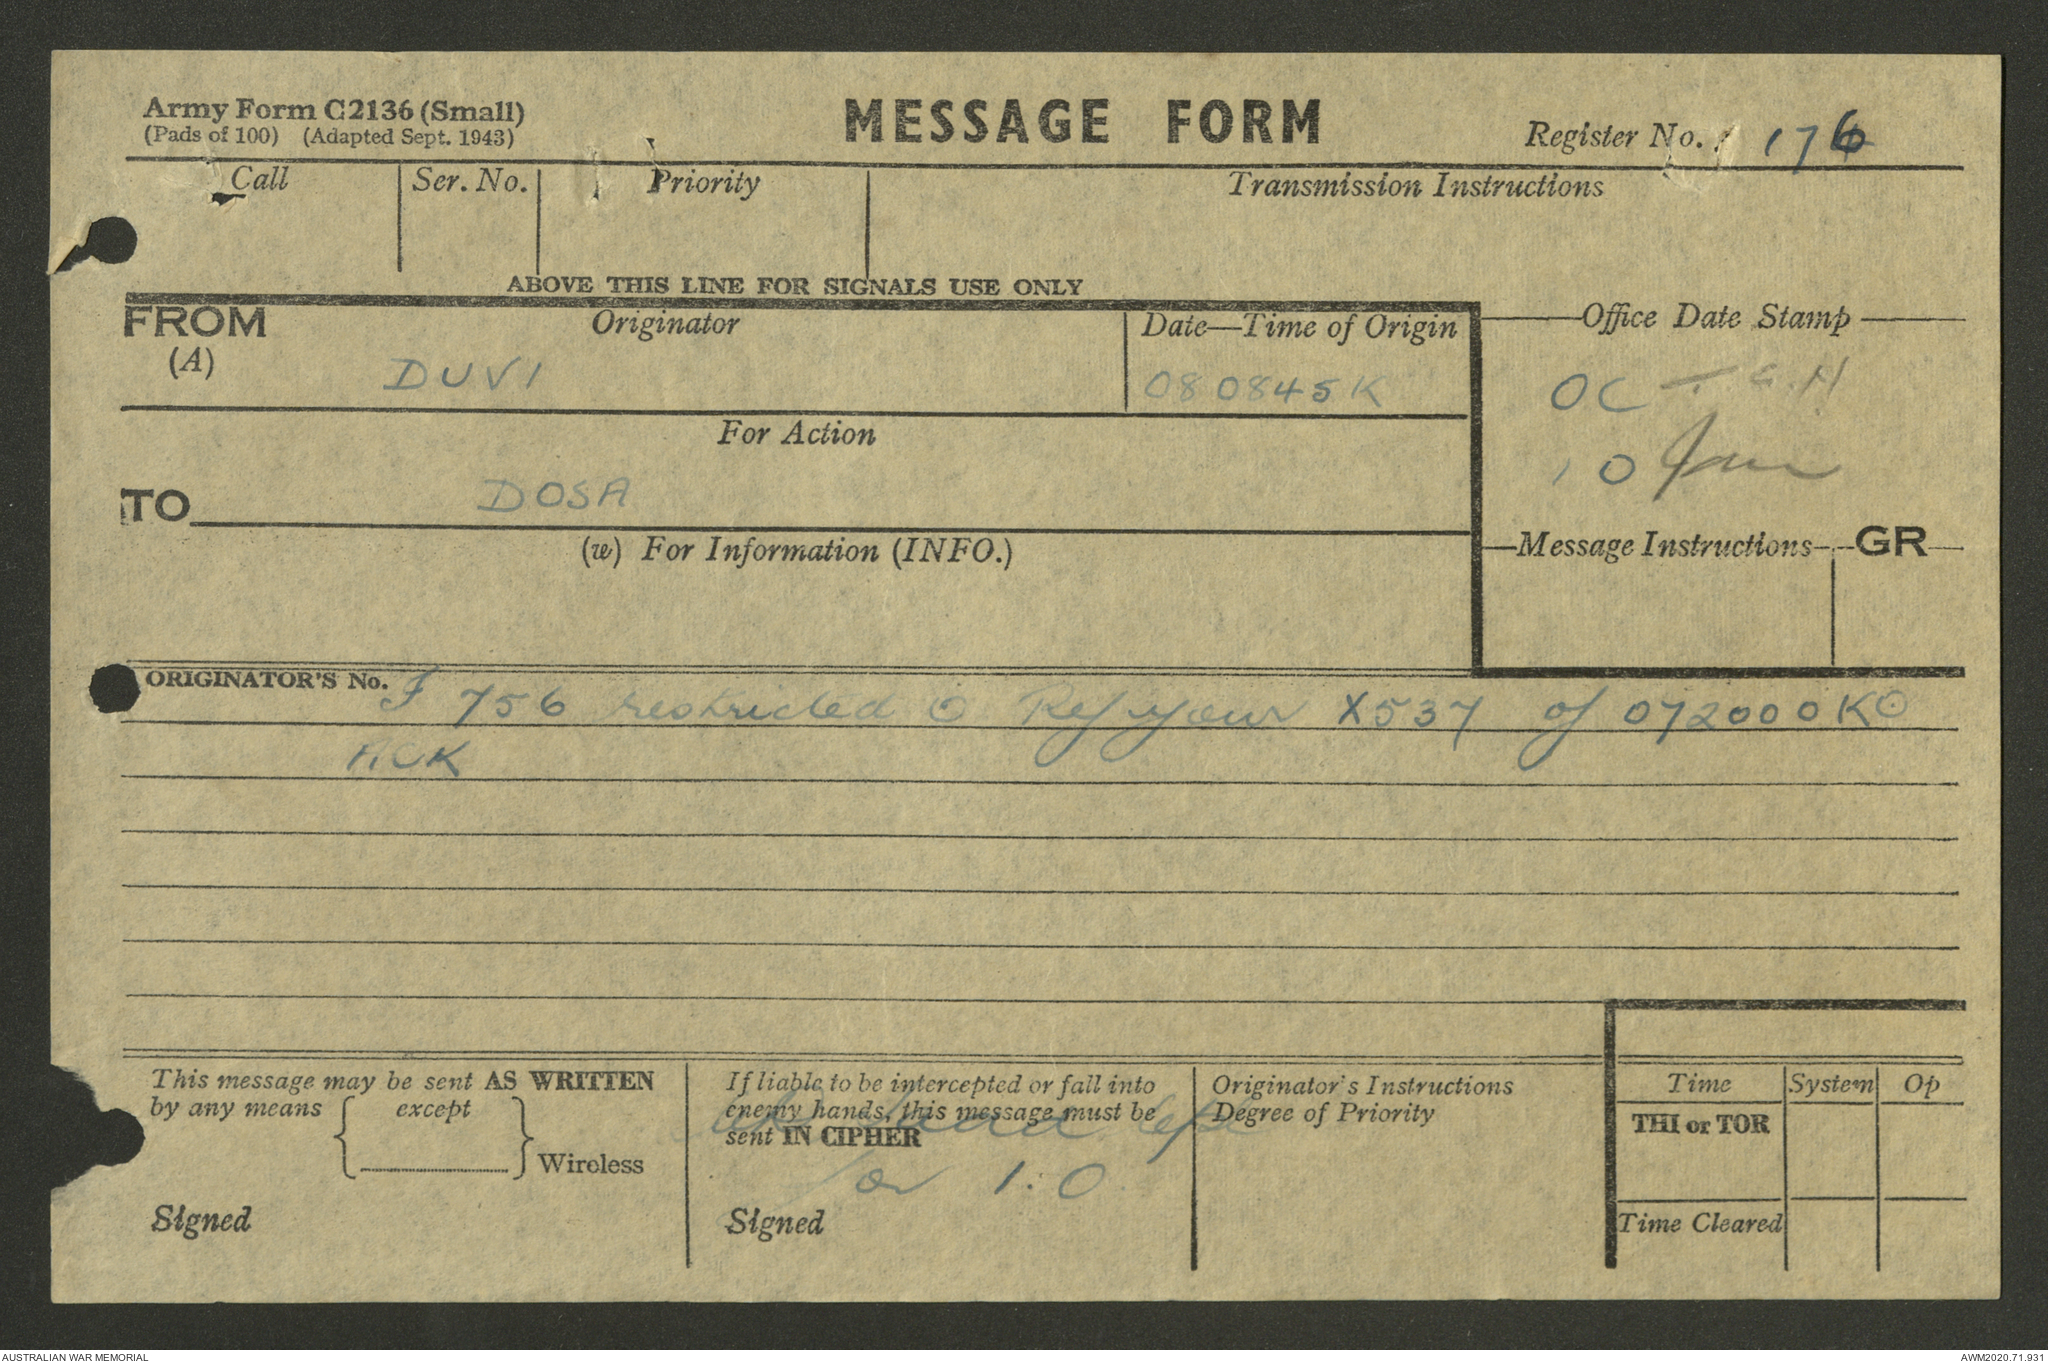 Army Form C2136 (Small)
(Pads of 100) (Adapted Sept. 1943)
MESSAGE FORM
Register No. 176
Call
Ser. No.
Priority
Transmission Instructions
ABOVE THIS LINE FOR SIGNALS USE ONLY
FROM
(A)
Originator
DUVI
Date—Time of Origin
080845K
Office Date Stamp
OC
10
For Action
TO
DOSA
(w) For Information (INFO.)
Message Instructions
GR
ORIGINATOR'S No.
F 756 restricted ⊙ Ref your X537 of 072000K⊙
ACK
This message may be sent AS WRITTEN
by any means { except } Wireless
Signed
If liable to be intercepted or fall into
enemy hands, this message must be
sent IN CIPHER
for I.O
Signed
Originator's Instructions
Degree of Priority
Time
System
Op
THI or TOR
Time Cleared
AUSTRALIAN WAR MEMORIAL
AWM2020.71.931